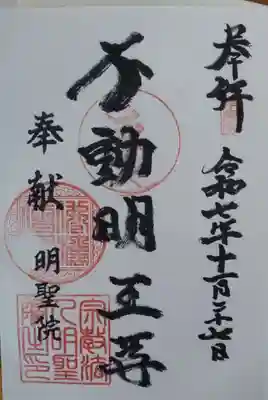 奉拝
令和七年十一月二十七日
不動明王尊
奉献
明聖院
宗教法人明聖院之印